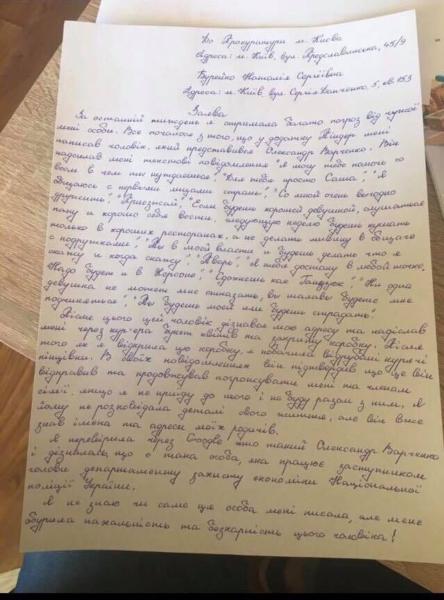 До Прокуратури м. Києва
Адреса: м. Київ, вул. Предславинська, 45/9
Бурейко Наталія Сергіївна
Адреса: м. Київ, вул. Сергія Данченко, 5, кв. 153
Заява
За останній тиждень я отримала багато погроз від чужої
мені особи. Все почалося з того, що у додатку Тіндер мені
написав чоловік, який представився Олександр Варченко. Він
надсилав мені текстові повідомлення "Я могу тебе помочь со
всем в чем ты нуждаешся", "Для тебя просто Саша", "Я
общаюсь с первыми лицами страны", "Со мной очень выгодно
дружить", "Приезжай", "Если будешь хорошей девушкой, слушаться
папу и хорошо себя вести, следующую неделю будешь кушать
только в хороших ресторанах, а не делать
с подружками", "Ты в моей власти и будешь делать что я
скажу и когда скажу", "Аваров", "Я тебя достану в любой точке,
Надо будет и в Херсоне", "Сдохнешь как Гандзюк", "Ни одна
девушка не может мне отказать, ты тоже будешь мне
подчиняться", "Ты будешь моей или будешь страдать"
Після цього цей чоловік дізнався мою адресу та надіслав
мені через кур'єра букет квітів та закриту коробку. Після
того як я відкрила цю коробку, я побачила відрубані курячі
кінцівки. В своїх повідомленнях він підтвердив що це він
відправив та продовжував погрожувати мені та членам
сім'ї якщо я не прийду до нього і не буду разом з ним, я
йому не розповідала деталі свого життя, але він вже
знав імена та адреси моїх родичів.
Я перевірила через Google хто такий Олександр Варченко
і дізналась, що є така особа, яка працює заступником
голови департаменту захисту економіки Національної
поліції України.
Я не знаю чи саме ця особа мені писала, але мене
обурила нахабність та безкарність цього чоловіка!